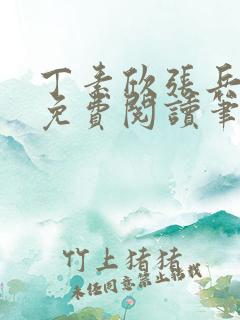 丁素欣張兵
免費閱讀筆
竹上猪猪
未经同意禁止转载